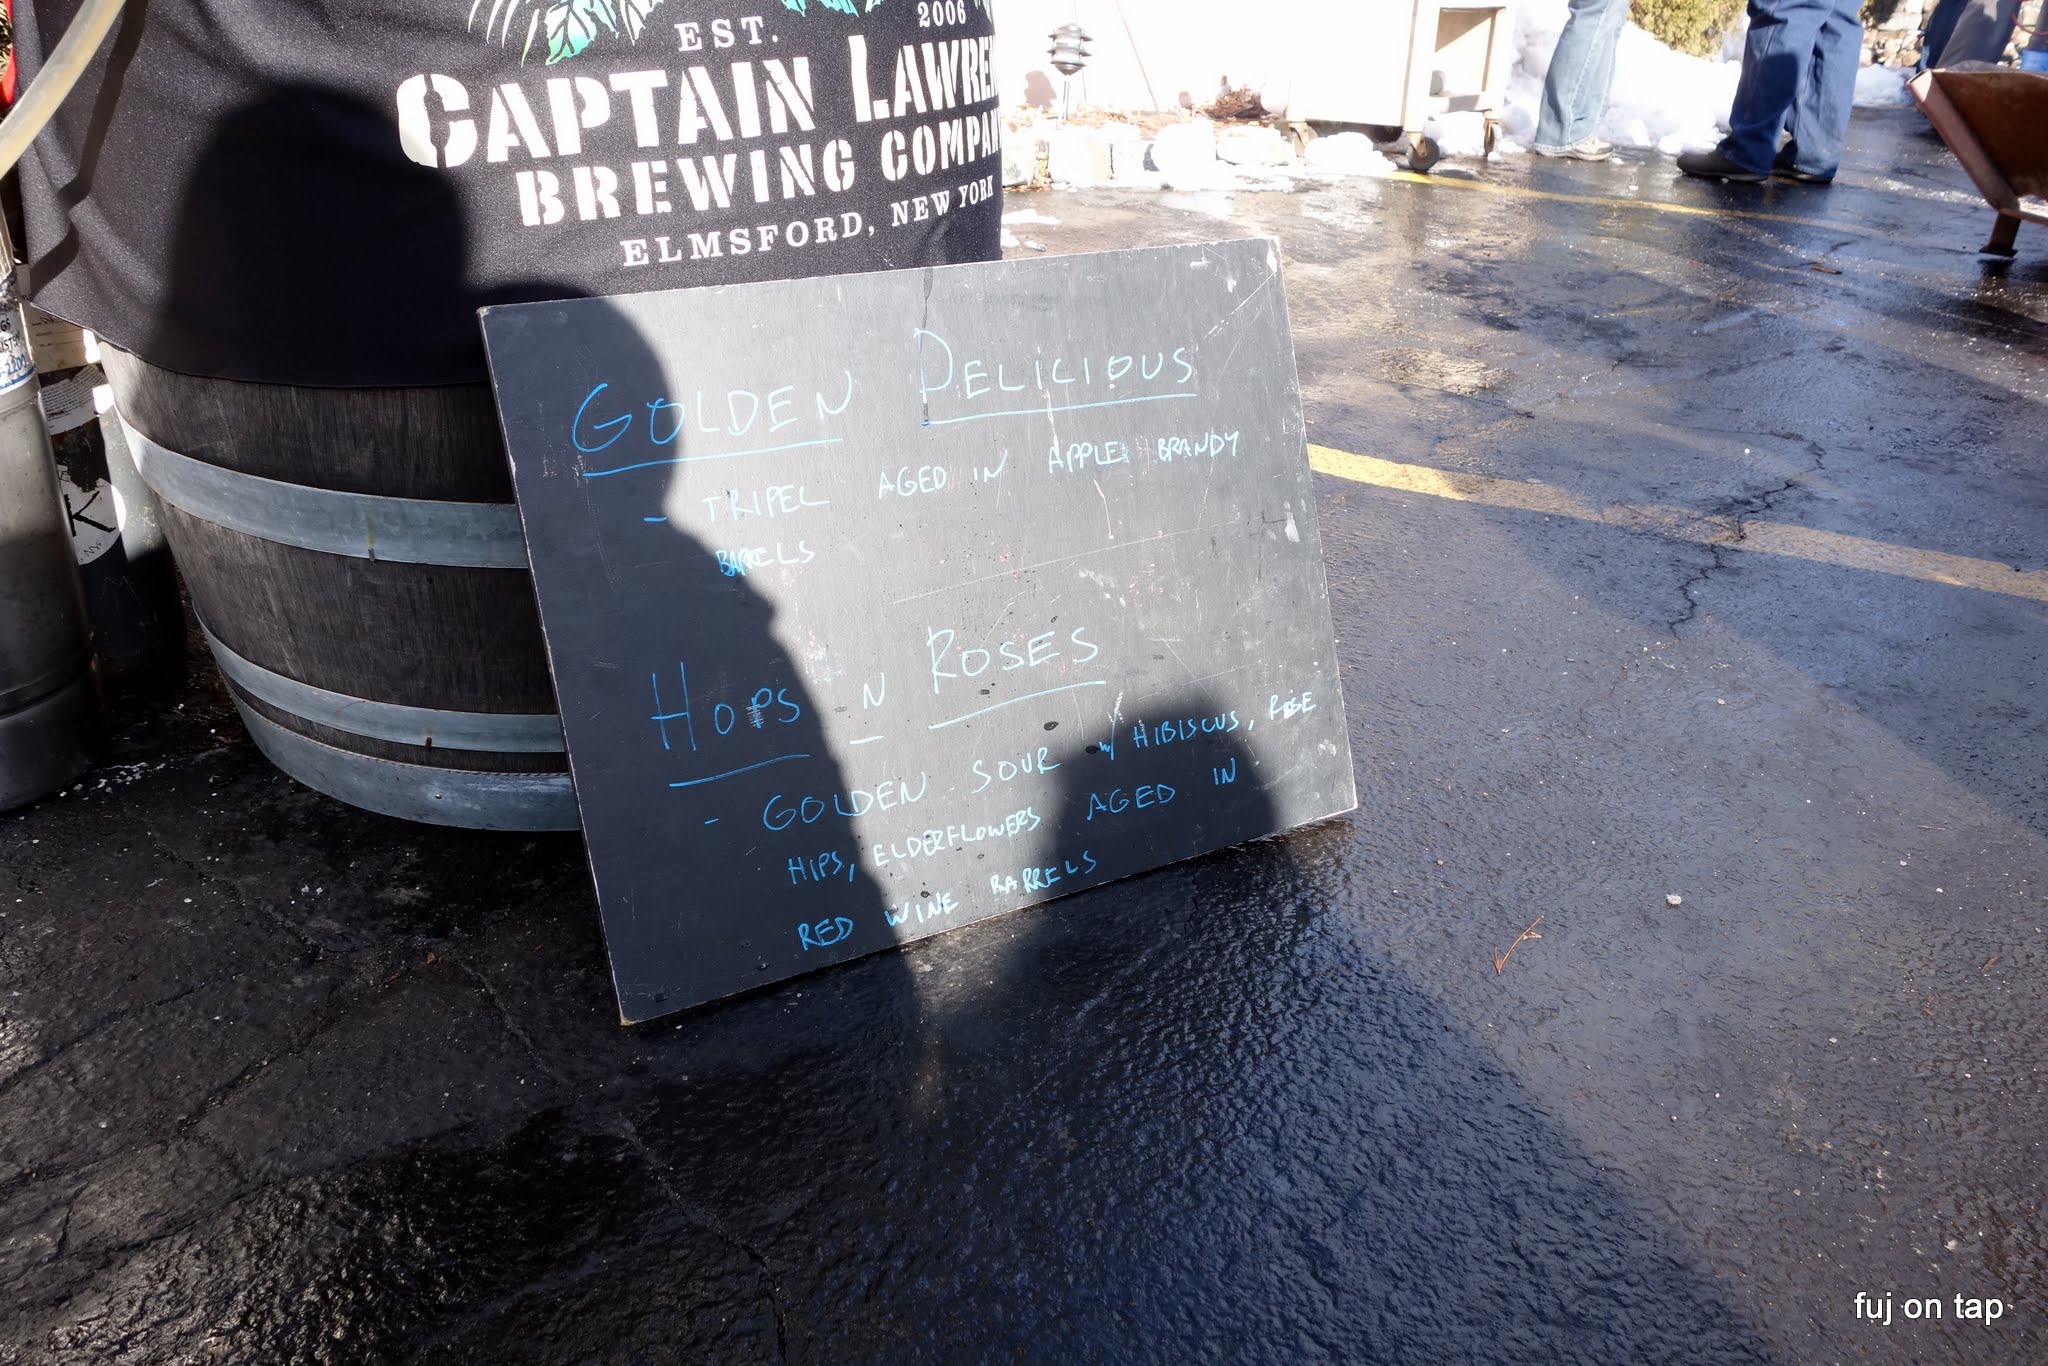 EST. 2006
CAPTAIN LAWREN
BREWING COMPAN
ELMSFORD, NEW YORK
GOLDEN DELICIOUS
- TRIPEL AGED IN APPLE BRANDY
BARRELS
HOPS N ROSES
- GOLDEN SOUR w/ HIBISCUS, ROSE
HIPS, ELDERFLOWERS AGED IN
RED WINE BARRELS
K
fuj on tap